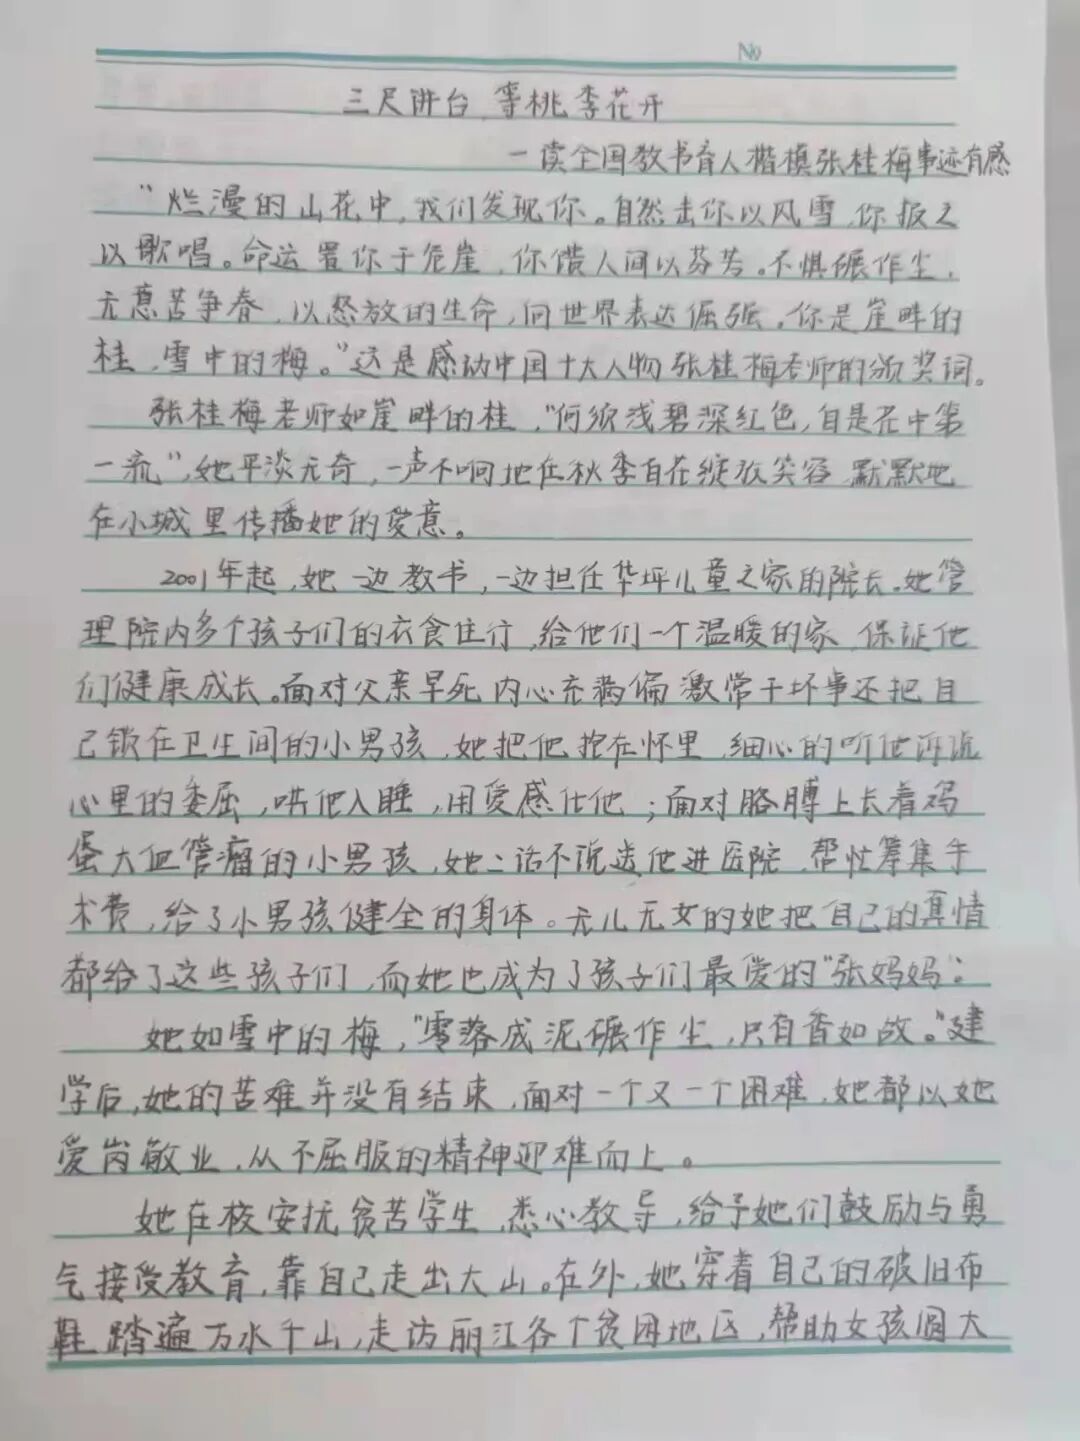 No
三尺讲台,等桃李花开
一读全国教书育人楷模张桂梅事迹有感
“烂漫的山花中,我们发现你。自然击你以风雪,你报之
以歌唱。命运置你于危崖,你馈人间以芬芳。不惧碾作尘,
无意苦争春,以怒放的生命,向世界表达倔强。你是崖畔的
桂,雪中的梅。”这是感动中国十大人物张桂梅老师的颁奖词。
张桂梅老师如崖畔的桂,“何须浅碧深红色,自是花中第
一流”,她平淡无奇,一声不响地在秋季自花绽放笑容,默默地
在小城里传播她的爱意。
2001年起,她一边教书,一边担任华坪儿童之家的院长。她管
理院内多个孩子们的衣食住行,给他们一个温暖的家,保证他
们健康成长。面对父亲早死内心充满偏激常干坏事还把自
己锁在卫生间的小男孩,她把他抱在怀里,细心的听他诉说
心里的委屈,哄他入睡,用爱感化他;面对胳膊上长着鸡
蛋大血管瘤的小男孩,她二话不说送他进医院,帮忙筹集手
术费,给了小男孩健全的身体。无儿无女的她把自己的真情
都给了这些孩子们,而她也成为了孩子们最爱的“张妈妈”。
她如雪中的梅,“零落成泥碾作尘,只有香如故。”建
学后,她的苦难并没有结束,面对一个又一个困难,她都以她
爱岗敬业,从不屈服的精神迎难而上。
她在校安抚贫苦学生,悉心教导,给予她们鼓励与勇
气接受教育,靠自己走出大山。在外,她穿着自己的破旧布
鞋踏遍万水千山,走访丽江各个贫困地区,帮助女孩圆大